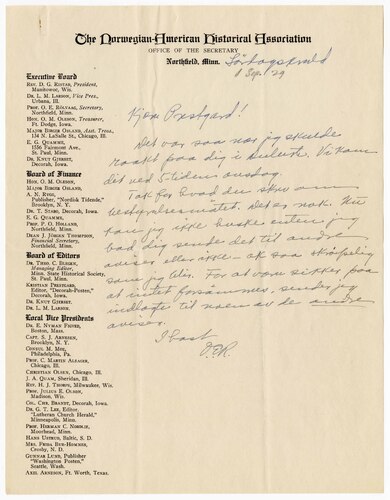 The Norwegian-American Historical Association
OFFICE OF THE SECRETARY
Northfield, Minn.
1 Sep. 29
Executive Board
REV. D. G. RISTAD, President,
Manitowoc, Wis.
DR. L. M. LARSON, Vice Pres.,
Urbana, Ill.
PROF. O. E. RÖLVAAG, Secretary,
Northfield, Minn.
HON. O. M. OLESON, Treasurer,
Ft. Dodge, Iowa.
MAJOR BIRGER OSLAND, Asst. Treas.,
134 N. LaSalle St., Chicago, Ill.
E. G. QUAMME,
1356 Fairmount Ave.
St. Paul, Minn.
DR. KNUT GJERSET,
Decorah, Iowa.
Board of Finance
HON. O. M. OLESON,
MAJOR BIRGER OSLAND,
A. N. RYGG,
Publisher, "Nordisk Tidende,"
Brooklyn, N. Y.
DR. T. STABO, Decorah, Iowa.
E. G. QUAMME,
PROF. P. O. HOLLAND,
Northfield, Minn.
DEAN J. JÖRGEN THOMPSON,
Financial Secretary,
Northfield, Minn.
Board of Editors
DR. THEO. C. BLEGEN,
Managing Editor,
Minn. State Historical Society,
St. Paul, Minn.
KRISTIAN PRESTGARD,
Editor, "Decorah-Posten,"
Decorah, Iowa.
DR. KNUT GJERSET,
DR. L. M. LARSON
Local Vice Presidents
DR. E. NYMAN FIGVED,
Boston, Mass.
CAPT. S. J. ARNESEN,
Brooklyn, N. Y.
CONSUL M. MOE,
Philadelphia, Pa.
PROF. C. MARTIN ALZAGER,
Chicago, Ill.
CHRISTIAN OLSEN, Chicago, Ill.
J. A. QUAM, Sheridan, Ill.
REV. H. J. THORPE, Milwaukee, Wis.
PROF. JULIUS E. OLSON,
Madison, Wis.
COL. CHR. BRANDT, Decorah, Iowa.
DR. G. T. LEE, Editor,
"Lutheran Church Herald,"
Minneapolis, Minn.
PROF. HERMAN C. NORDLIE,
Moorhead, Minn.
HANS USTRUD, Baltic, S. D.
MRS. FRIDA BUE-HOMNES,
Crosby, N. D.
GUNNAR LUND, Publisher
"Washington Posten,"
Seattle, Wash.
AXEL ARNESON, FT. Worth, Texas.
Kjære Prestgard!
Det var saa nær jeg skulde
raakt paa dig i Duluth. Vi kom
dit ved 5 tiden onsdag.
Tak for hvad du skrev om
Det er nok. Nu
kan jeg ikke huske enten jeg
bad dig sende det til andre
aviser eller ikke – ak saa skröpelig
som jeg blir. For at være sikker paa
at intet forsömmes, sender jeg
indlagte til noen av de andre
aviser.
I hast
O.E.R.